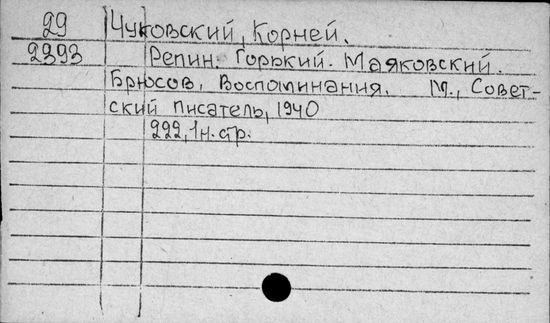 29 Чуковский, Корней.
2393 Репин. Горький. Маяковский.
Брюсов, Воспоминания. М., Совет-
ский писатель, 1940
222, 1н. стр.